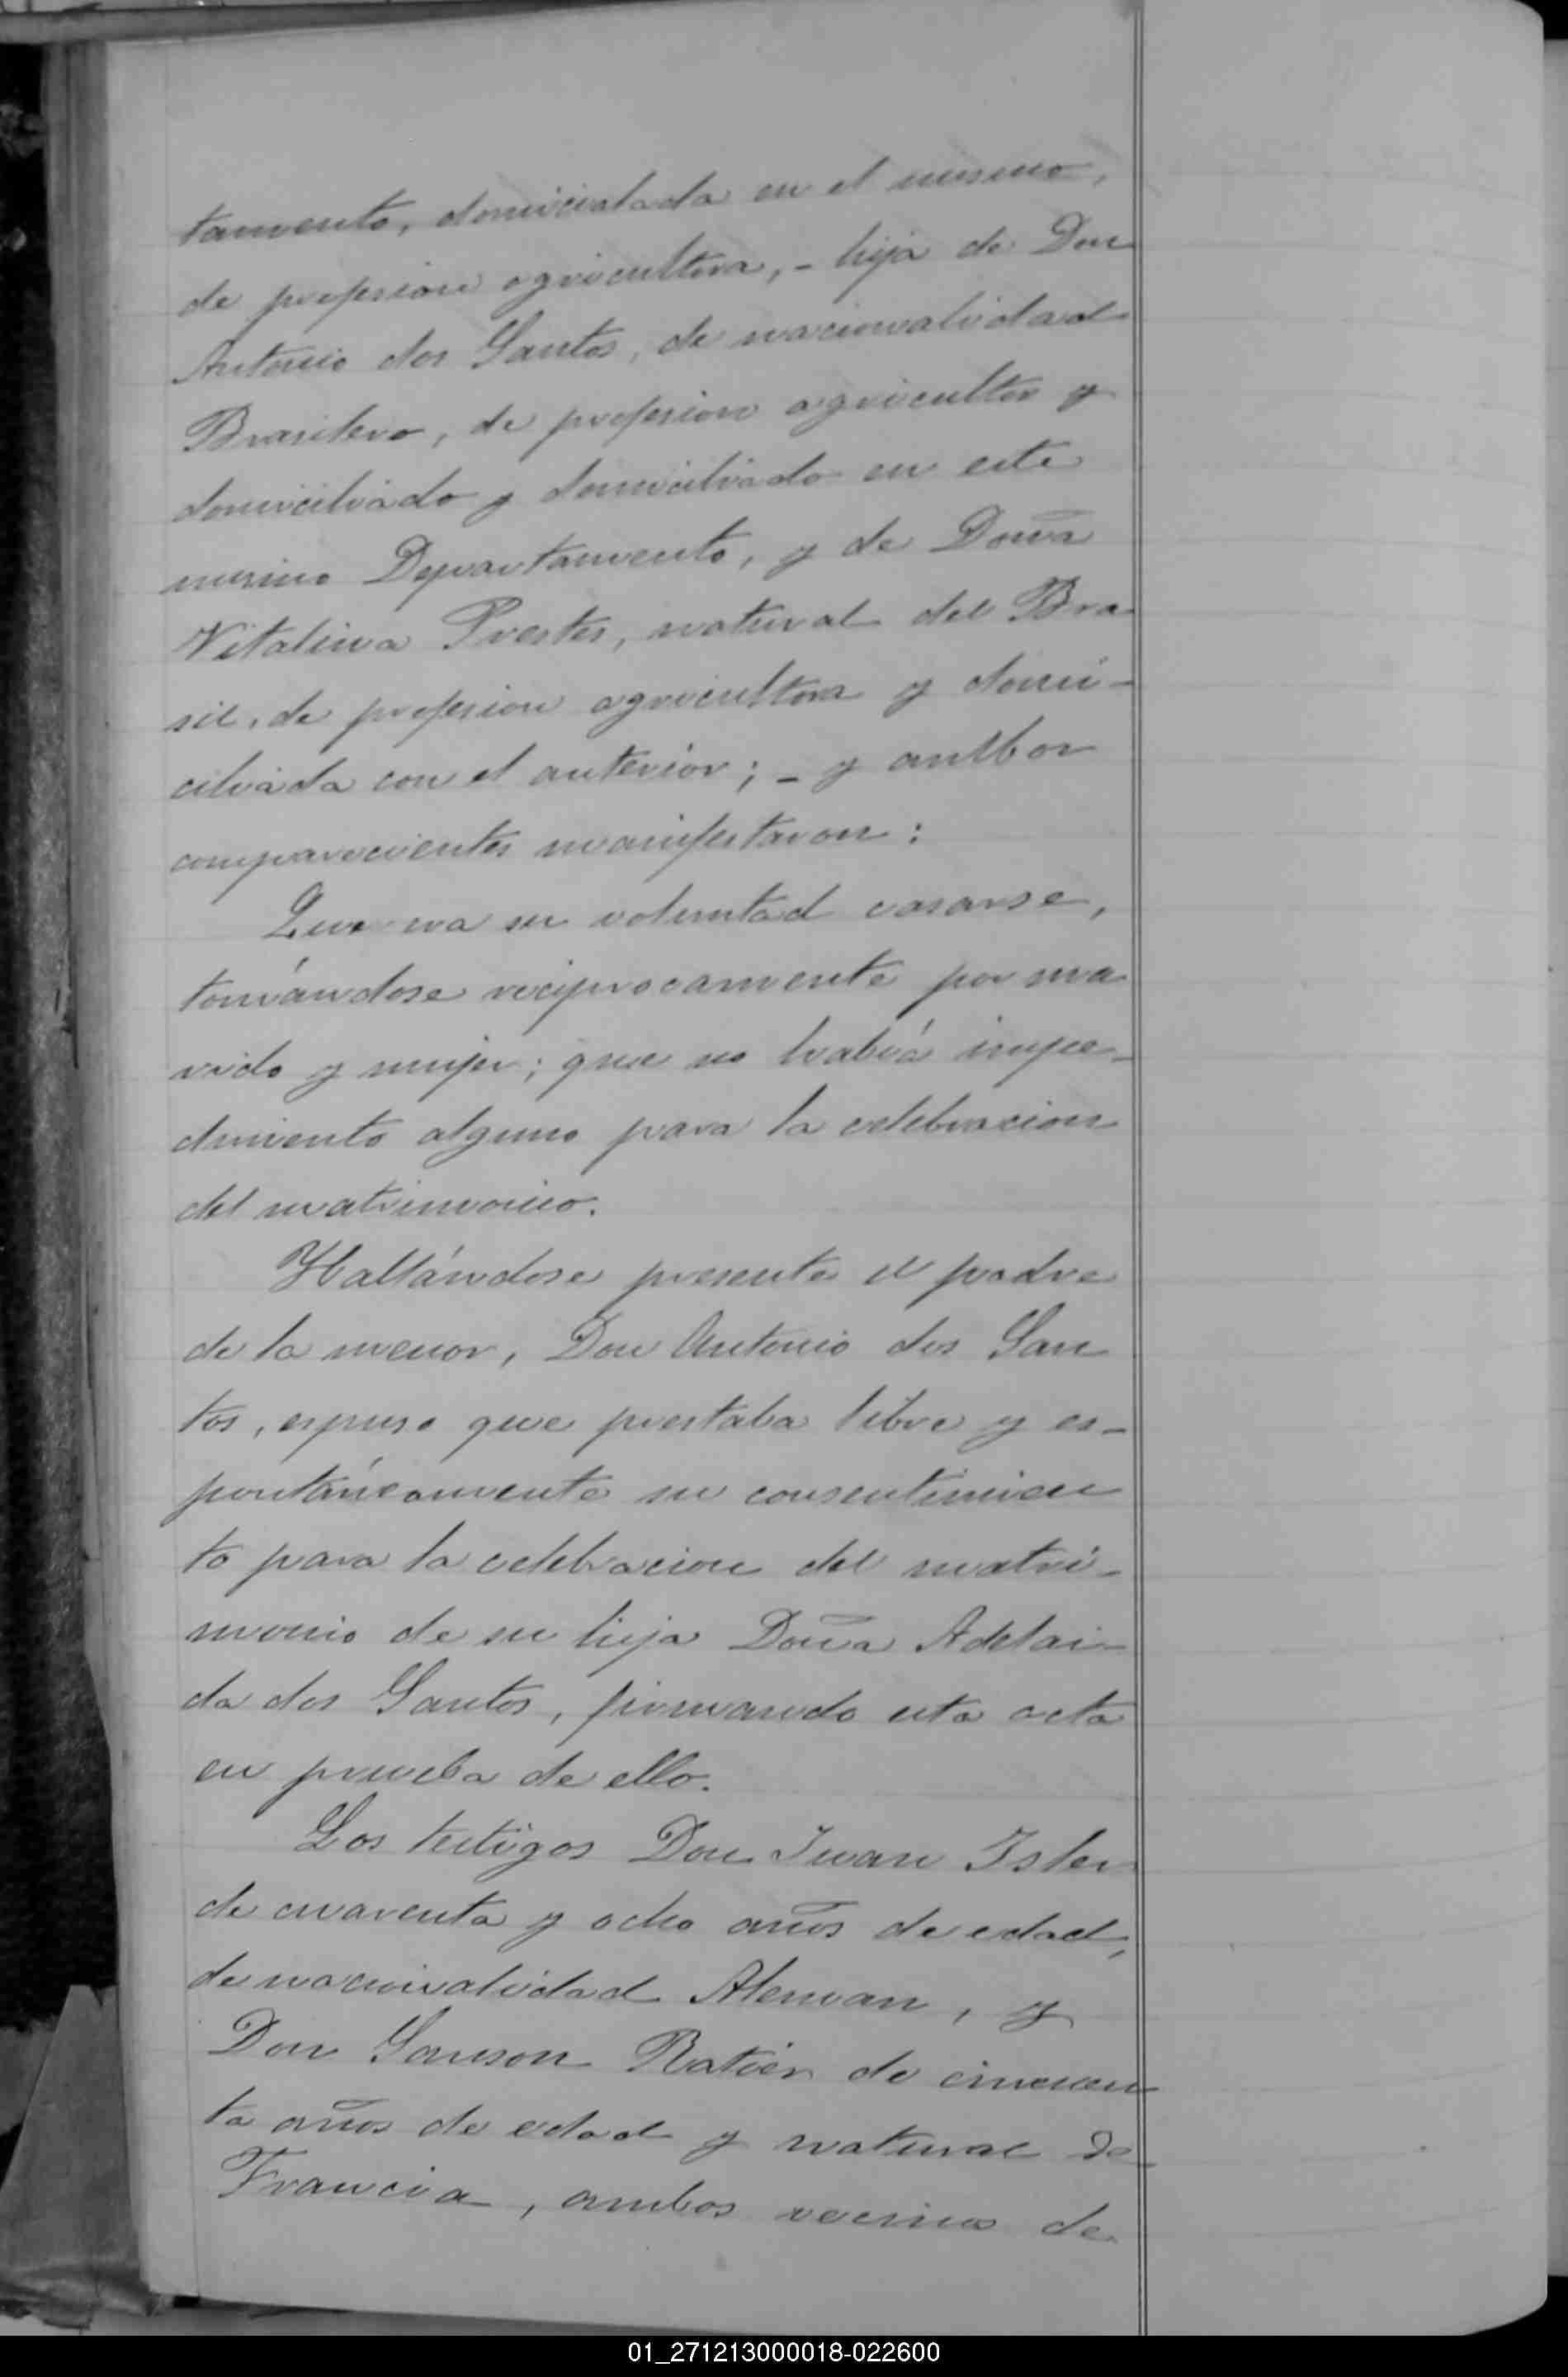 tamento, domicialada en el mismo,
de profesion agricultora, - hija de Don
Antonio dos Santos, de nacionalidad
Brasilero, de profesion agricultor y
domiciliado y domiciliado en este
mismo Departamento, y de Doña
Vitalina Prestes, natural del Bra
sil, de profesion agricultora y domi-
ciliada con el anterior; - y ambos
comparecientes manifestaron:
Que era su voluntad casarse,
tomándose reciprocamente por ma
rido y mujer; que no habiá impe-
dimento alguno para la celebracion
del matrimonio.
Hallándose presente el padre
de la menor, Don Antonio dos San
tos, espuso que prestaba libre y es-
pontáneamente su consentimien
to para la celebracion del matri-
monio de su hija Doña Adelai-
da dos Santos, firmando esta acta
en prueba de ello.
Los testigos Don Juan Isler
de cuarenta y ocho años de edad,
de nacionalidad Aleman, y
Don Sanson Ratier de cincuen
ta años de edad y natural de
Francia, ambos vecinos de
01_271213000018-022600